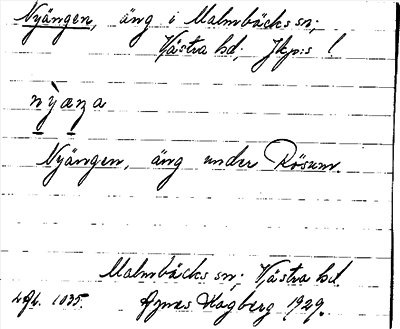 Nyängen, äng i Malmbäcks sn;
Västra hd; Jkp:s l
nỳæŋa
Nyängen, äng under Rösum.
Malmbäcks sn; Västra hd.
1035. Agnes Hagberg 1929.